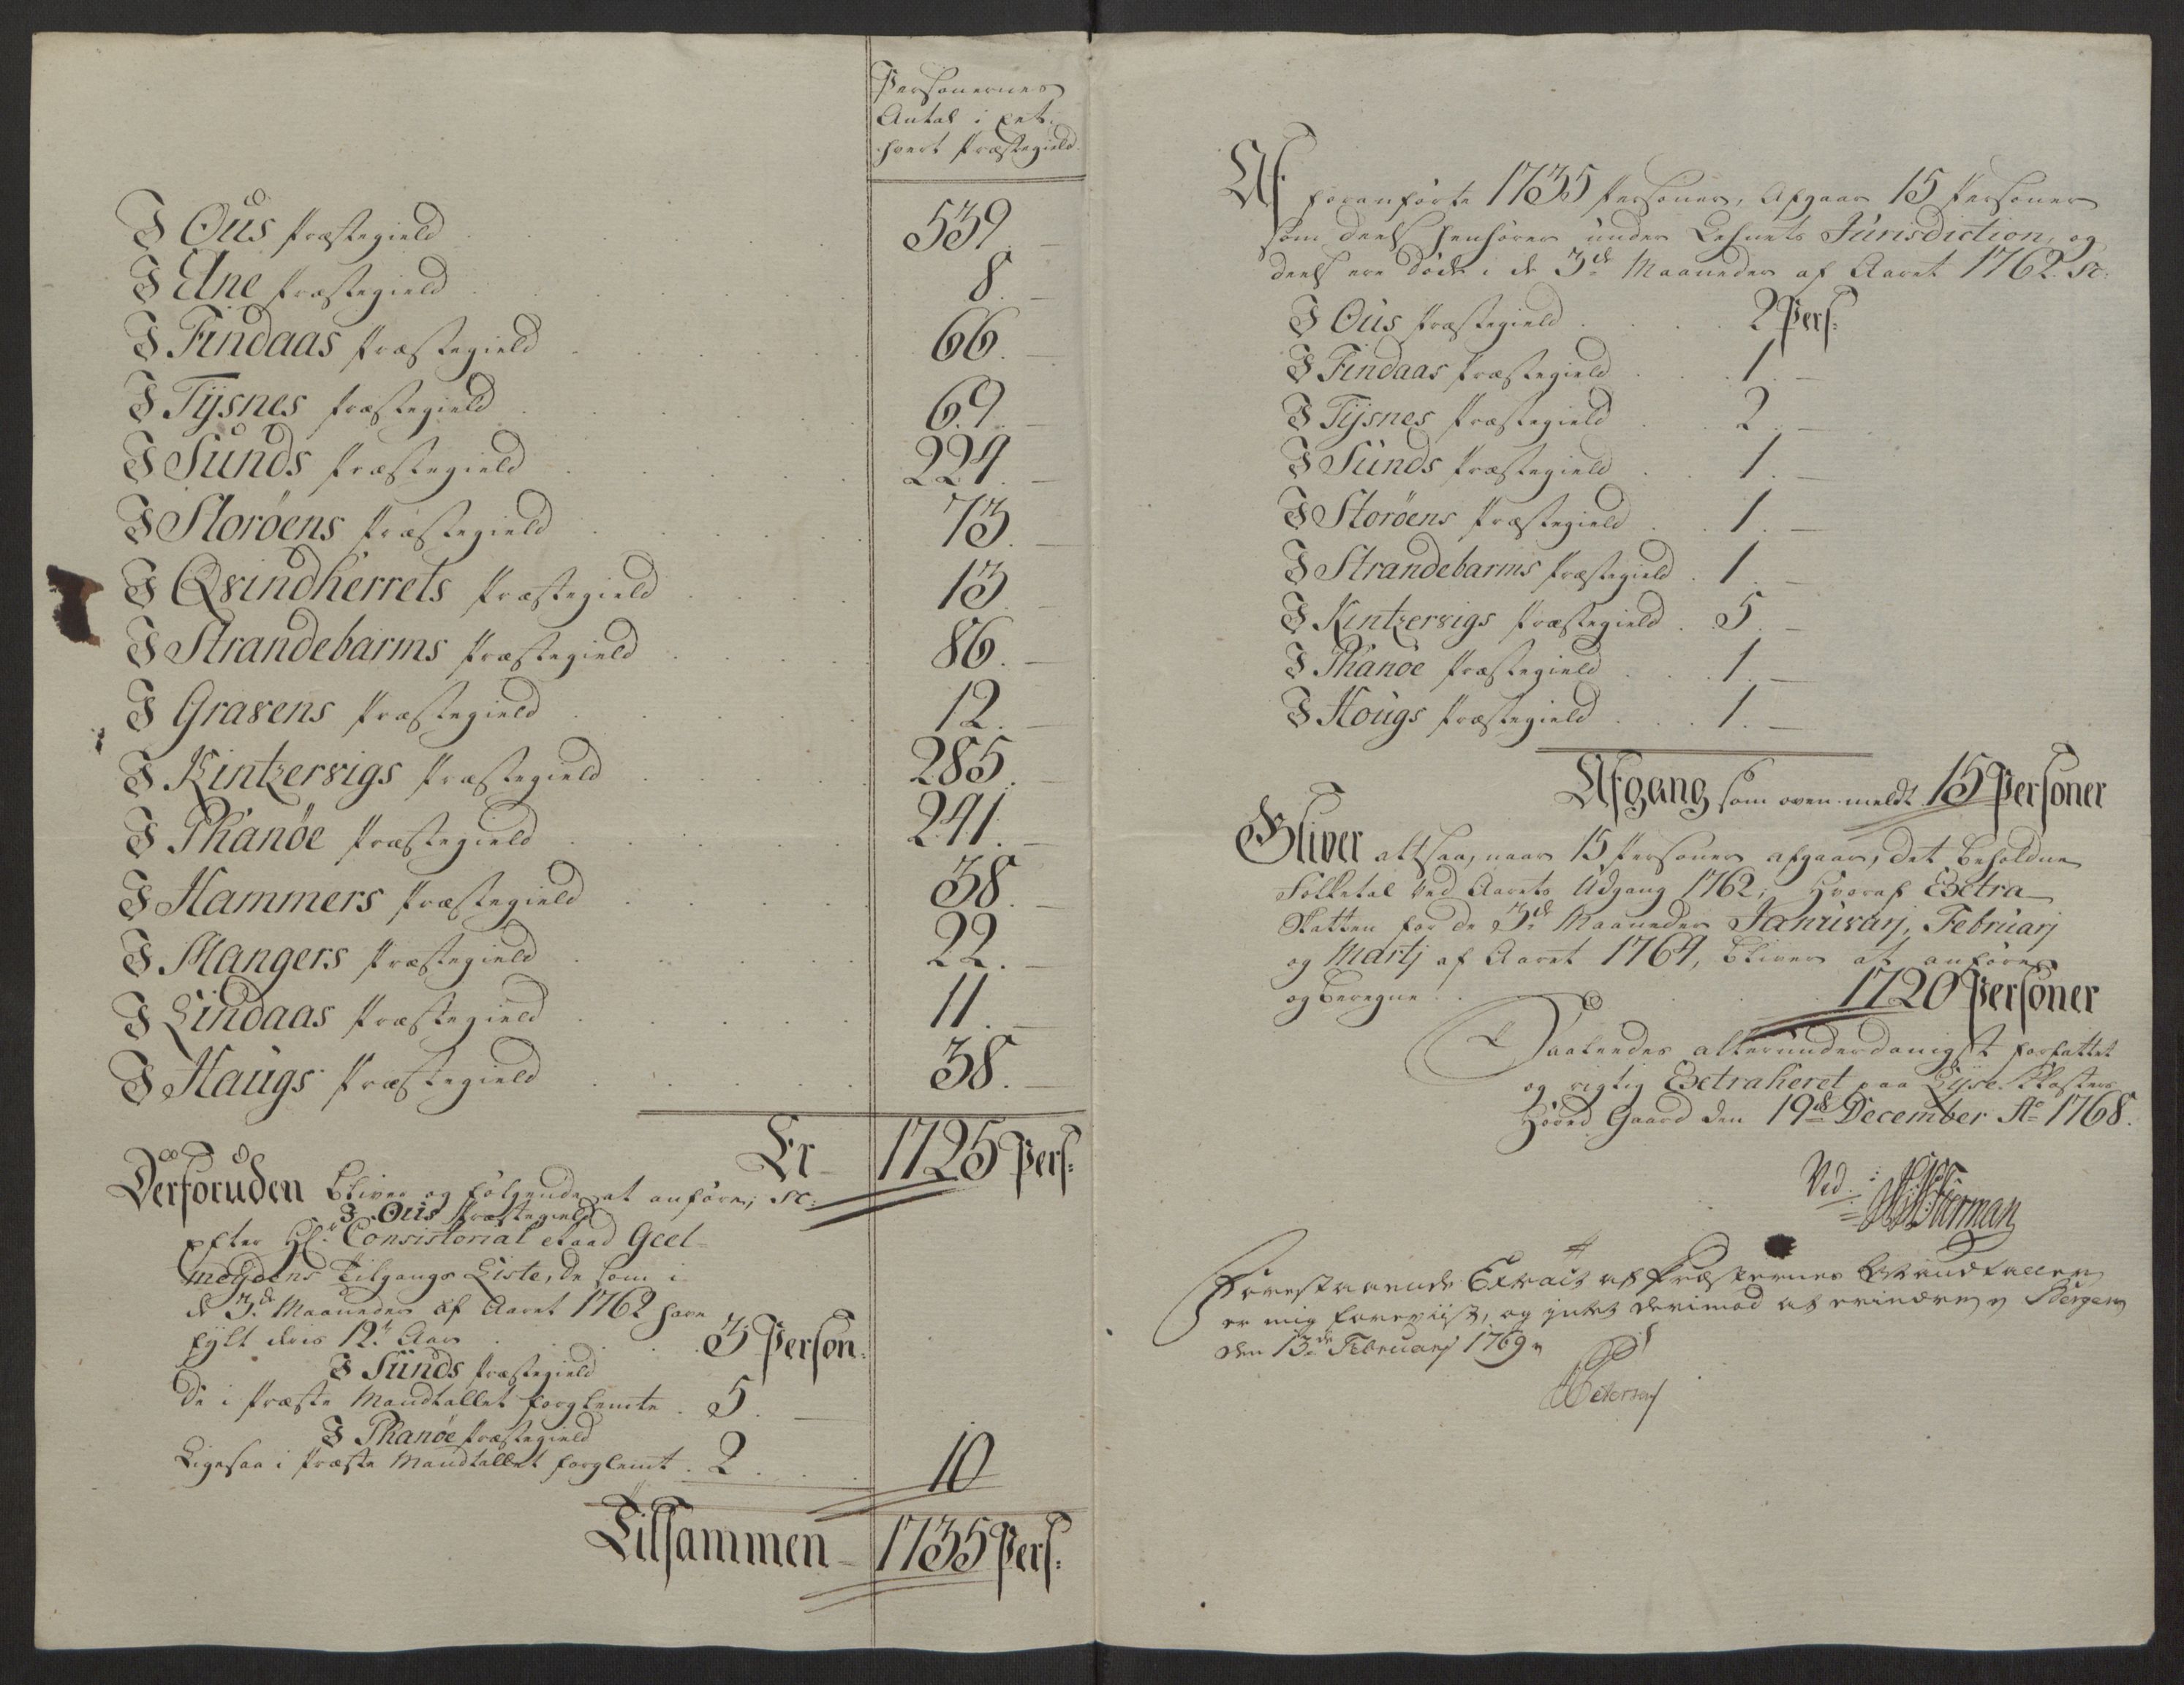 Personernes
Antal i et-
hvert Præstegield
I Ous Præstegield 539.
I Elne Præstegield 8.
I Findaas Præstegield 66.
I Tysnes Præstegield 69.
I Sunds Præstegield 224.
I Storöens Præstegield 73.
I Qvindherrets Præstegield 13.
I Strandebarms Præstegield 86.
I Gravens Præstegield 12.
I Kintzervigs Præstegield 285.
I Phanöe Præstegield 241.
I Hammers Præstegield 38.
I Mangers Præstegield 22.
I Lindaas Præstegield 11.
I Haugs Præstegield 38.
Er 1725 Pers:
Derforuden bliver og følgende at anføre, sc:
I Ous Præstegield
efter Hr. Consistorial Raad Geel-
meydens Tilgangs Liste, de som i
de 3de Maaneder af Aaret 1762 have
fylt deris 12te Aar 3 Person:
I Sunds Præstegield
De i Præste Mandtallet forglemte 5.
I Phanöe Præstegield
Ligesaa i Præste Mandtallet forglemt 2. 10
Tilsammen 1735 Pers:
Af foranførte 1735 Personer, Afgaar 15 Personer
som deels henhører under Lehnets Jurisdiction, og
deels ere døde i de 3de Maaneder af Aaret 1762. sc:
I Ous Præstegield 2 Pers:
I Findaas Præstegield 1.
I Tysnes Præstegield 2.
I Sunds Præstegield 1.
I Storöens Præstegield 1.
I Strandebarms Præstegield 1.
I Kintzervigs Præstegield 5.
I Phanöe Præstegield 1.
I Hougs Præstegield 1.
Afgang som oven meldt 15 Personer
Bliver altsaa, naar 15 Personer afgaar, det beholdne
Folketal ved Aarets Udgang 1762, hvoraf Extra
Skatten for de 3de Maaneder Januvarj, Februarj
og Martj af Aaret 1764, bliver at anføre
og beregne 1720 Personer
Saaledes allerunderdanigst forfattet
og rigtig Extraheret paa Lyse Klosters
Hoved Gaard den 19de December Ao 1768.
Ved
Forestaaende Extract af Præsternes Mandtaller
er mig foreviist, og intet derimod at erindre Bergen
den 13de Februarj 1769
Petersen